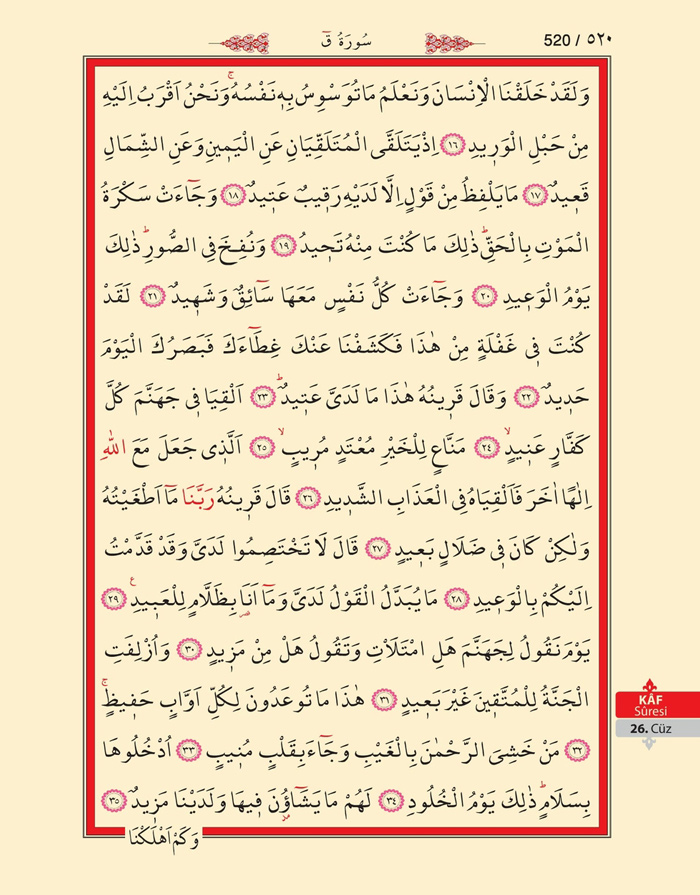 520 / ٥٢٠
سُورَةُ قٓ
وَلَقَدْ خَلَقْنَا الْاِنْسَانَ وَنَعْلَمُ مَا تُوَسْوِسُ بِه۪ نَفْسُهُۚ وَنَحْنُ اَقْرَبُ اِلَيْهِ
مِنْ حَبْلِ الْوَر۪يدِ ﴿١٦﴾ اِذْ يَتَلَقَّى الْمُتَلَقِّيَانِ عَنِ الْيَم۪ينِ وَعَنِ الشِّمَالِ
قَع۪يدٌ ﴿١٧﴾ مَا يَلْفِظُ مِنْ قَوْلٍ اِلَّا لَدَيْهِ رَق۪يبٌ عَت۪يدٌ ﴿١٨﴾ وَجَٓاءَتْ سَكْرَةُ
الْمَوْتِ بِالْحَقِّۜ ذٰلِكَ مَا كُنْتَ مِنْهُ تَح۪يدُ ﴿١٩﴾ وَنُفِخَ فِي الصُّورِۜ ذٰلِكَ
يَوْمُ الْوَع۪يدِ ﴿٢٠﴾ وَجَٓاءَتْ كُلُّ نَفْسٍ مَعَهَا سَٓائِقٌ وَشَه۪يدٌ ﴿٢١﴾ لَقَدْ
كُنْتَ ف۪ي غَفْلَةٍ مِنْ هٰذَا فَكَشَفْنَا عَنْكَ غِطَٓاءَكَ فَبَصَرُكَ الْيَوْمَ
حَد۪يدٌ ﴿٢٢﴾ وَقَالَ قَر۪ينُهُ هٰذَا مَا لَدَيَّ عَت۪يدٌۜ ﴿٢٣﴾ اَلْقِيَا ف۪ي جَهَنَّمَ كُلَّ
كَفَّارٍ عَن۪يدٍۙ ﴿٢٤﴾ مَنَّاعٍ لِلْخَيْرِ مُعْتَدٍ مُر۪يبٍۙ ﴿٢٥﴾ اَلَّذ۪ي جَعَلَ مَعَ اللّٰهِ
اِلٰهًا اٰخَرَ فَاَلْقِيَاهُ فِي الْعَذَابِ الشَّد۪يدِ ﴿٢٦﴾ قَالَ قَر۪ينُهُ رَبَّنَا مَٓا اَطْغَيْتُهُ
وَلٰكِنْ كَانَ ف۪ي ضَلَالٍ بَع۪يدٍ ﴿٢٧﴾ قَالَ لَا تَخْتَصِمُوا لَدَيَّ وَقَدْ قَدَّمْتُ
اِلَيْكُمْ بِالْوَع۪يدِ ﴿٢٨﴾ مَا يُبَدَّلُ الْقَوْلُ لَدَيَّ وَمَٓا اَنَا۬ بِظَلَّامٍ لِلْعَب۪يدِ۟ ﴿٢٩﴾
يَوْمَ نَقُولُ لِجَهَنَّمَ هَلِ امْتَلَاْتِ وَتَقُولُ هَلْ مِنْ مَز۪يدٍ ﴿٣٠﴾ وَاُزْلِفَتِ
الْجَنَّةُ لِلْمُتَّق۪ينَ غَيْرَ بَع۪يدٍ ﴿٣١﴾ هٰذَا مَا تُوعَدُونَ لِكُلِّ اَوَّابٍ حَف۪يظٍۚ
﴿٣٢﴾ مَنْ خَشِيَ الرَّحْمٰنَ بِالْغَيْبِ وَجَٓاءَ بِقَلْبٍ مُن۪يبٍ ﴿٣٣﴾ اُدْخُلُوهَا
بِسَلَامٍۜ ذٰلِكَ يَوْمُ الْخُلُودِ ﴿٣٤﴾ لَهُمْ مَا يَشَٓاؤُ۫نَ ف۪يهَا وَلَدَيْنَا مَز۪يدٌ ﴿٣٥﴾
وَكَمْ اَهْلَكْنَا
KÂF
Sûresi
26. Cüz